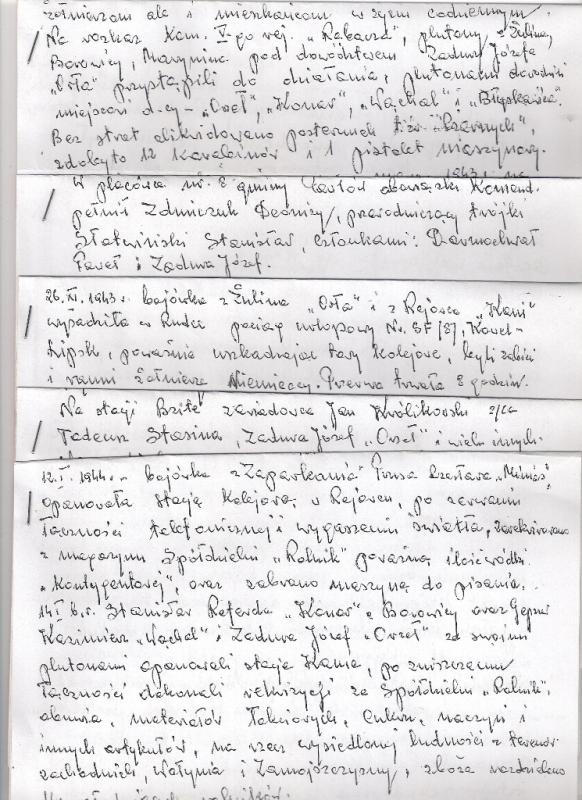 żołnierzom ale i mieszkańcom w życiu codziennym.
Na rozkaz Kom. V-go rej. „Rabarza", plutony z Żulina,
Borowicy, Marynina pod dowództwem Zadura Józefa
"Orła" przystąpili do działania, plutonami dowodzili
miejscowi d-cy - „Orzeł", „Konar", „Wąchal" i „Błyskawica".
Bez strat zlikwidowano posterunek t.zw. "Czarnych",
zdobyto 12 karabinów i 1 pistolet maszynowy.
W placówce nr. 8 gminy obowiązki Komend.
pełnił Zdunczuk , przewodniczący trójki
Stanisław, członkami:
Paweł i Zadura Józef.
26.XI.1943 r. bojówka z Żulina „Orła" i z Rejowca „Kani"
wysadziła w Rudce pociąg urlopowy Nr. SF/87, Kowel-
Lipsk, poważnie uszkadzając tory kolejowe, byli zabici
i ranni żołnierze Niemieccy. Przerwa trwała 8 godzin.
Na stacji zawiadowca Jan Królikowski
Tadeusz Stasina, Zadura Józef „Orzeł" i wielu innych.
12.I.1944 r. bojówka Czesława „Mimas",
opanowała stację Kolejową w Rejowcu, po zerwaniu
łączności telefonicznej i wygaszeniu światła, zarekwirowano
z magazynu Spółdzielni „Rolnik" poważną ilość wódki
„Kontygentowej", oraz zabrano maszynę do pisania.
14.I b.r. Stanisław Referda „Konar" z Borowicy oraz
Kazimierz „Wąchal" i Zadura Józef „Orzeł" ze swoimi
plutonami opanowali stację Kanie, po zniszczeniu
łączności dokonali rekwizycji ze Spółdzielni „Rolnik",
obuwia, materiałów łokciowych, cukru, naczyń i
innych artykułów, na rzecz wysiedlonej ludności z terenów
zachodnich, Wołynia i Zamojszczyzny, zboża rozdzielono